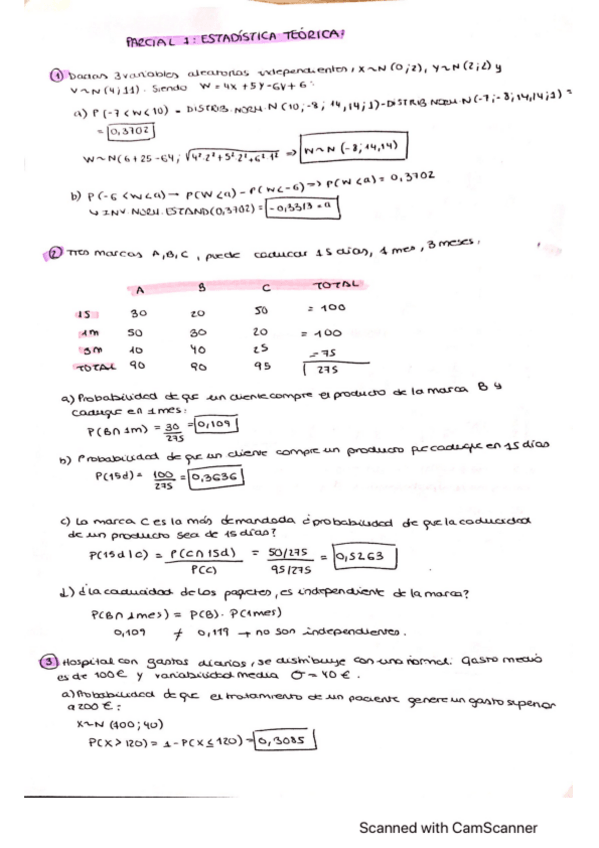 PARCIAL 1: ESTADÍSTICA TEÓRICA:
① Dadas 3 variables aleatorias independientes, X~N(0;2), Y~N(2;2) y
V~N(4;11). Siendo W=4X+5Y-6V+6:
a) P(-7<W<10) = DISTRIB.NORM.N(10;-8;14,14;1)-DISTRIB.NORM.N(-7;-8;14,14;1)=
= 0,3702
W~N(6+25-64; √4²·2²+5²·2²+6²·1² => W~N(-8;14,14)
b) P(-6<W<a) → P(W<a) - P(W<-6) => P(W<a) = 0,3702
↳ INV.NORM.ESTAND(0,3702) = -0,3313 = a
② Tres marcas A, B, C, puede caducar 15 días, 1 mes, 3 meses.
A B C TOTAL
15 30 20 50 = 100
1m 50 30 20 = 100
3m 10 40 25 = 75
TOTAL 90 90 95 275
a) Probabilidad de que un cliente compre el producto de la marca B y
caduque en 1 mes:
P(B∩1m) = 30/275 = 0,109
b) Probabilidad de que un cliente compre un producto que caduque en 15 días
P(15d) = 100/275 = 0,3636
c) La marca C es la más demandada ¿probabilidad de que la caducidad
de un producto sea de 15 días?
P(15d|C) = P(C∩15d)/P(C) = 50/275/95/275 = 0,5263
d) ¿la caducidad de los paquetes, es independiente de la marca?
P(B∩1mes) = P(B)·P(1mes)
0,109 ≠ 0,119 → no son independientes.
③ Hospital con gastos diarios, se distribuye con una normal. Gasto medio
es de 100€ y variabilidad media σ=40€.
a) Probabilidad de que el tratamiento de un paciente genere un gasto superior
a 200€:
X~N(100;40)
P(X>120) = 1-P(X≤120) = 0,3085
Scanned with CamScanner